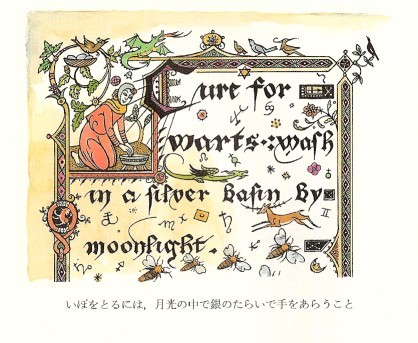 Cure for
warts: wash
in a silver basin by
moonlight.
いぼをとるには，月光の中で銀のたらいで手をあらうこと